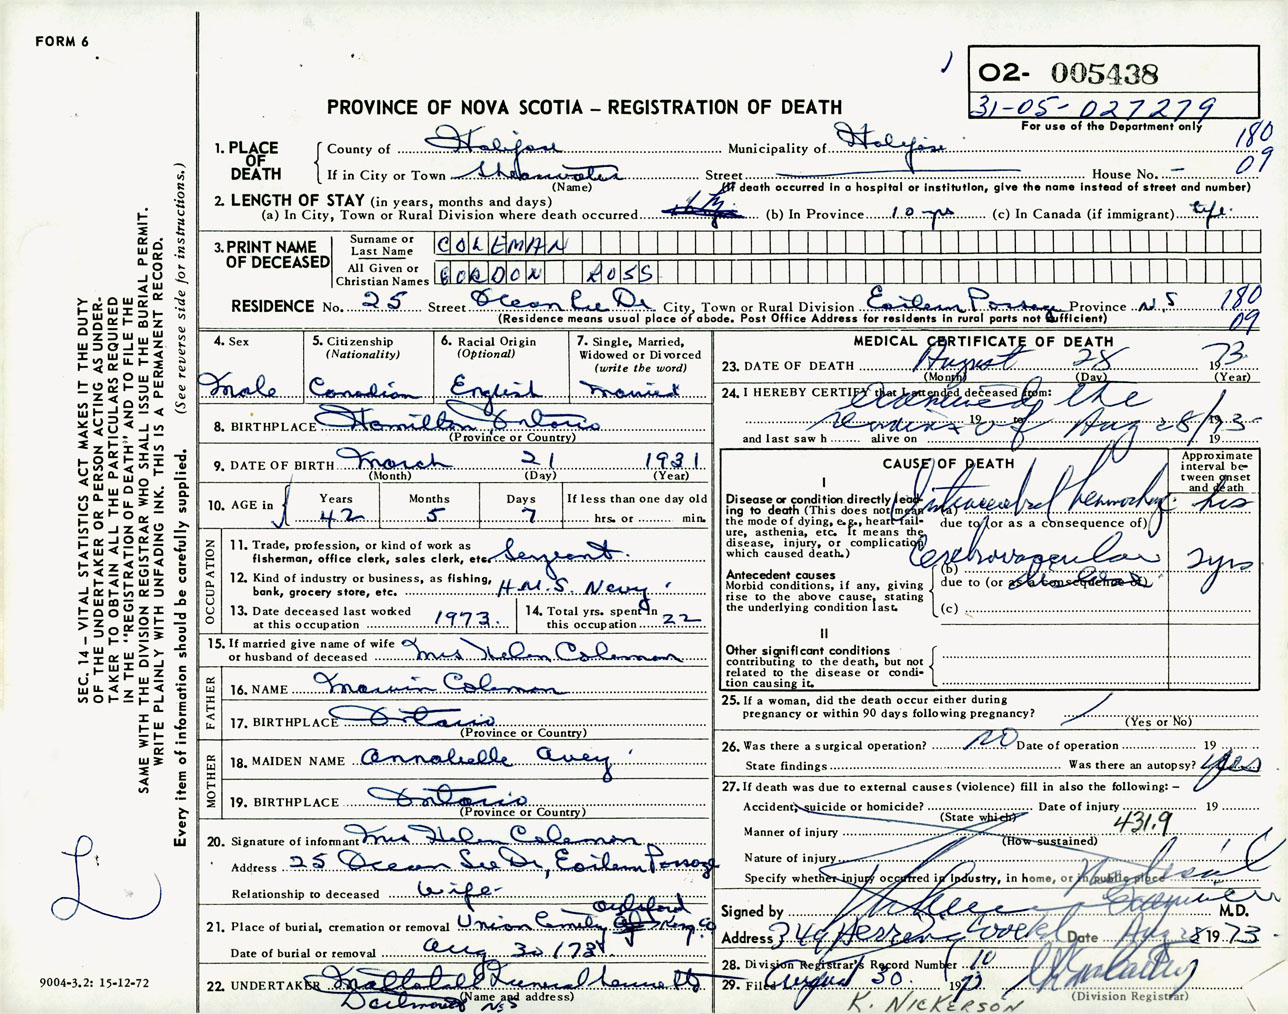 FORM 6
O2- 005438
31-05-027279
For use of the Department only
PROVINCE OF NOVA SCOTIA – REGISTRATION OF DEATH
180
09
1. PLACE OF DEATH
County of Halifax Municipality of Halifax
If in City or Town Shearwater Street House No. -
(Name) (If death occurred in a hospital or institution, give the name instead of street and number)
2. LENGTH OF STAY (in years, months and days)
(a) In City, Town or Rural Division where death occurred (b) In Province 10 yrs (c) In Canada (if immigrant) Life
3. PRINT NAME OF DECEASED
Surname or Last Name COLEMAN
All Given or Christian Names GORDON ROSS
RESIDENCE No. 25 Street Ocean Lee Dr City, Town or Rural Division Eastern Passage Province N.S 180
(Residence means usual place of abode. Post Office Address for residents in rural parts not sufficient) 09
4. Sex
Male
5. Citizenship (Nationality)
Canadian
6. Racial Origin (Optional)
English
7. Single, Married, Widowed or Divorced (write the word)
Married
8. BIRTHPLACE Hamilton, Ontario
(Province or Country)
9. DATE OF BIRTH March 21 1931
(Month) (Day) (Year)
10. AGE in Years Months Days If less than one day old
42 5 7 hrs. or min.
OCCUPATION
11. Trade, profession, or kind of work as fisherman, office clerk, sales clerk, etc. Sergeant.
12. Kind of industry or business, as fishing, bank, grocery store, etc. H.M.S. Navy
13. Date deceased last worked at this occupation 1973.
14. Total yrs. spent in this occupation 22
15. If married give name of wife or husband of deceased Mrs Helen Coleman
FATHER
16. NAME Marvin Coleman
17. BIRTHPLACE Ontario
(Province or Country)
MOTHER
18. MAIDEN NAME Annabelle Avey
19. BIRTHPLACE Ontario
(Province or Country)
20. Signature of informant Mrs Helen Coleman
Address 25 Ocean Lee Dr, Eastern Passage
Relationship to deceased Wife-
21. Place of burial, cremation or removal Union
Date of burial or removal Aug 30 173
22. UNDERTAKER Mattatall Funeral
(Name and address)
Dartmouth NS
MEDICAL CERTIFICATE OF DEATH
23. DATE OF DEATH August 28 1973
(Month) (Day) (Year)
24. I HEREBY CERTIFY that I attended deceased from:
the
19 to of Aug 28/73 19
and last saw h alive on 19
CAUSE OF DEATH
Approximate interval between onset and death
I
Disease or condition directly leading to death (This does not mean the mode of dying, e.g., heart failure, asthenia, etc. It means the disease, injury, or complication which caused death.)
(a) Intracerebral hemorrhage hrs
due to (or as a consequence of)
Antecedent causes
Morbid conditions, if any, giving rise to the above cause, stating the underlying condition last.
(b) Cerebrovascular 2yrs
due to (or as a consequence of)
(c)
II
Other significant conditions
contributing to the death, but not related to the disease or condition causing it.
25. If a woman, did the death occur either during pregnancy or within 90 days following pregnancy?
(Yes or No)
26. Was there a surgical operation? no Date of operation 19
State findings Was there an autopsy? Yes
27. If death was due to external causes (violence) fill in also the following: –
Accident, suicide or homicide? Date of injury 19
(State which) 431.9
Manner of injury
(How sustained)
Nature of injury
Specify whether injury occurred in Industry, in home, or in public place
Signed by Medical Examiner M.D.
Address Date Aug 28 1973
28. Division Registrar's Record Number 10
29. Filed August 30 1973
(Division Registrar)
K. NICKERSON
SEC. 14 – VITAL STATISTICS ACT MAKES IT THE DUTY
OF THE UNDERTAKER OR PERSON ACTING AS UNDER-
TAKER TO OBTAIN ALL THE PARTICULARS REQUIRED
IN THE "REGISTRATION OF DEATH" AND TO FILE THE
SAME WITH THE DIVISION REGISTRAR WHO SHALL ISSUE THE BURIAL PERMIT.
WRITE PLAINLY WITH UNFADING INK. THIS IS A PERMANENT RECORD.
Every item of information should be carefully supplied. (See reverse side for instructions.)
9004-3.2: 15-12-72